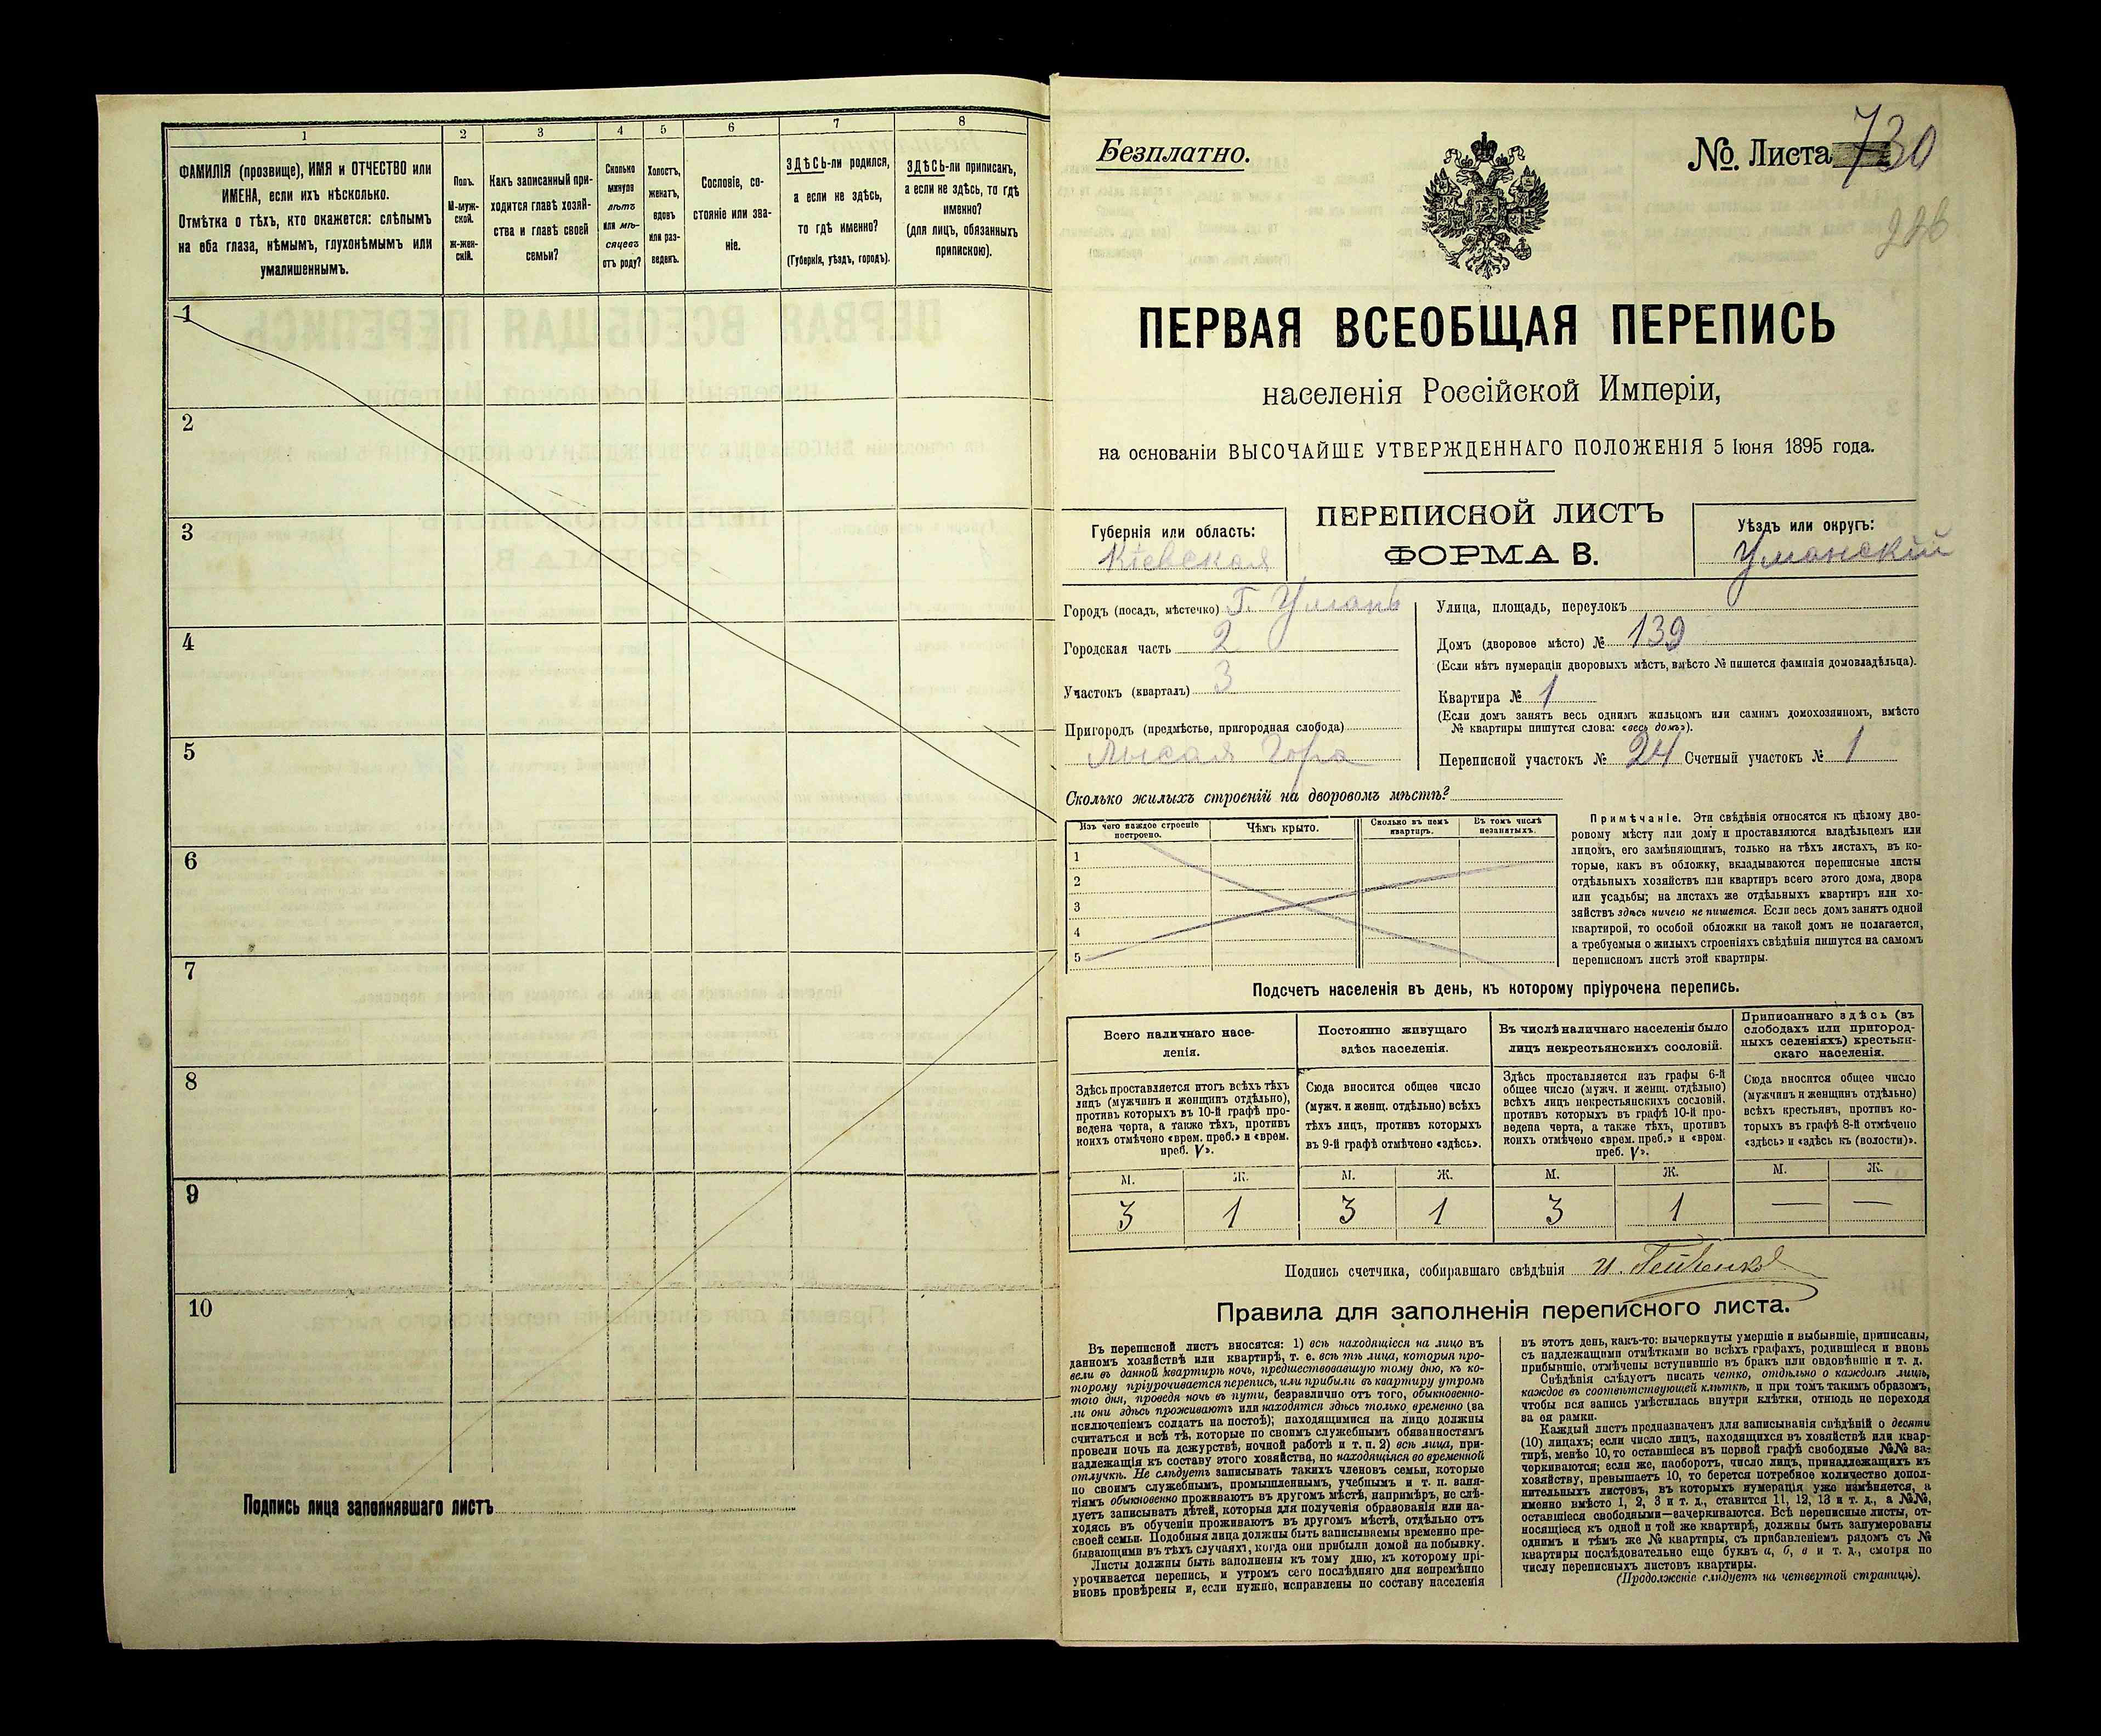 1
2
3
4
5
6
7
8
ФАМИЛІЯ (прозвище), ИМЯ и ОТЧЕСТВО или
ИМЕНА, если ихъ нѣсколько.
Отмѣтка о тѣхъ, кто окажется: слѣпымъ
на оба глаза, нѣмымъ, глухонѣмымъ или
умалишеннымъ.
Полъ.
М-муж-
ской.
Ж-жен-
скій.
Какъ записанный при-
ходится главѣ хозяй-
ства и главѣ своей
семьи?
Сколько
минуло
лѣтъ
или мѣ-
сяцевъ
отъ роду?
Холостъ,
женатъ,
вдовъ
или раз-
веденъ.
Сословіе, со-
стояніе или зва-
ніе.
ЗДѢСЬ-ли родился,
а если не здѣсь,
то гдѣ именно?
(Губернія, уѣздъ, городъ).
ЗДѢСЬ-ли приписанъ,
а если не здѣсь, то гдѣ
именно?
(для лицъ, обязанныхъ
припискою).
1
2
3
4
5
6
7
8
9
10
Подпись лица заполнявшаго листъ
Безплатно.
№. Листа 730
226
ПЕРВАЯ ВСЕОБЩАЯ ПЕРЕПИСЬ
населенія Россійской Имперіи,
на основаніи ВЫСОЧАЙШЕ УТВЕРЖДЕННАГО ПОЛОЖЕНІЯ 5 Іюня 1895 года.
Губернія или область:
Кіевская
ПЕРЕПИСНОЙ ЛИСТЪ
ФОРМА В.
Уѣздъ или округъ:
Уманскій
Городъ (посадъ, мѣстечко) Г. Умань
Городская часть 2
Участокъ (кварталъ) 3
Пригородъ (предмѣстье, пригородная слобода)
Лысая Гора
Улица, площадь, переулокъ
Домъ (дворовое мѣсто) № 139
(Если нѣтъ нумераціи дворовыхъ мѣстъ, вмѣсто № пишется фамилія домовладѣльца).
Квартира № 1
(Если домъ занятъ весь однимъ жильцомъ или самимъ домохозяиномъ, вмѣсто
№ квартиры пишутся слова: «весь домъ»).
Переписной участокъ № 24 Счетный участокъ № 1
Сколько жилыхъ строеній на дворовомъ мѣстѣ?
Изъ чего каждое строеніе
построено.
Чѣмъ крыто.
Сколько въ немъ
квартиръ.
Въ томъ числѣ
незанятыхъ.
1
2
3
4
5
Примѣчаніе. Эти свѣдѣнія относятся къ цѣлому дво-
ровому мѣсту или дому и проставляются владѣльцемъ или
лицомъ, его замѣняющимъ, только на тѣхъ листахъ, въ ко-
торые, какъ въ обложку, вкладываются переписные листы
отдѣльныхъ хозяйствъ или квартиръ всего этого дома, двора
или усадьбы; на листахъ же отдѣльныхъ квартиръ или хо-
зяйствъ здѣсь ничего не пишется. Если весь домъ занятъ одной
квартирой, то особой обложки на такой домъ не полагается,
а требуемыя о жилыхъ строеніяхъ свѣдѣнія пишутся на самомъ
переписномъ листѣ этой квартиры.
Подсчетъ населенія въ день, къ которому пріурочена перепись.
Всего наличнаго насе-
ленія.
Постоянно живущаго
здѣсь населенія.
Въ числѣ наличнаго населенія было
лицъ некрестьянскихъ сословій.
Приписаннаго здѣсь (въ
слободахъ или пригород-
ныхъ селеніяхъ) крестьян-
скаго населенія.
Здѣсь проставляется итогъ всѣхъ тѣхъ
лицъ (мужчинъ и женщинъ отдѣльно),
противъ которыхъ въ 10-й графѣ про-
ведена черта, а также тѣхъ, противъ
коихъ отмѣчено «врем. преб.» и «врем.
преб. V».
Сюда вносится общее число
(мужч. и женщ. отдѣльно) всѣхъ
тѣхъ лицъ, противъ которыхъ
въ 9-й графѣ отмѣчено «здѣсь».
Здѣсь проставляется изъ графы 6-й
общее число (мужч. и женщ. отдѣльно)
всѣхъ лицъ некрестьянскихъ сословій,
противъ которыхъ въ графѣ 10-й про-
ведена черта, а также тѣхъ, противъ
коихъ отмѣчено «врем. преб.» и «врем.
преб. V».
Сюда вносится общее число
(мужчинъ и женщинъ отдѣльно)
всѣхъ крестьянъ, противъ ко-
торыхъ въ графѣ 8-й отмѣчено
«здѣсь» и «здѣсь къ (волости)».
М. Ж. М. Ж. М. Ж. М. Ж.
3 1 3 1 3 1 — —
Подпись счетчика, собиравшаго свѣдѣнія И.
Правила для заполненія переписного листа.
Въ переписной листъ вносятся: 1) всѣ находящіеся на лицо въ
данномъ хозяйствѣ или квартирѣ, т. е. всѣ тѣ лица, которыя про-
вели въ данной квартирѣ ночь, предшествовавшую тому дню, къ ко-
торому пріурочивается перепись, или прибыли въ квартиру утромъ
того дня, проведя ночь въ пути, безразлично отъ того, обыкновенно-
ли они здѣсь проживаютъ или находятся здѣсь только временно (за
исключеніемъ солдатъ на постоѣ); находящимися на лицо должны
считаться и всѣ тѣ, которые по своимъ служебнымъ обязанностямъ
провели ночь на дежурствѣ, ночной работѣ и т. п. 2) всѣ лица, при-
надлежащія къ составу этого хозяйства, но находящіяся во временной
отлучкѣ. Не слѣдуетъ записывать такихъ членовъ семьи, которые
по своимъ служебнымъ, промышленнымъ, учебнымъ и т. п. заня-
тіямъ обыкновенно проживаютъ въ другомъ мѣстѣ, напримѣръ, не слѣ-
дуетъ записывать дѣтей, которыя для полученія образованія или на-
ходясь въ обученіи проживаютъ въ другомъ мѣстѣ, отдѣльно отъ
своей семьи. Подобныя лица должны быть записываемы временно пре-
бывающими въ тѣхъ случаяхъ, когда они прибыли домой на побывку.
Листы должны быть заполнены къ тому дню, къ которому прі-
урочивается перепись, и утромъ сего послѣдняго дня непремѣнно
вновь провѣрены и, если нужно, исправлены по составу населенія
въ этотъ день, какъ-то: вычеркнуты умершіе и выбывшіе, приписаны,
съ надлежащими отмѣтками во всѣхъ графахъ, родившіеся и вновь
прибывшіе, отмѣчены вступившіе въ бракъ или овдовѣвшіе и т. д.
Свѣдѣнія слѣдуетъ писать четко, отдѣльно о каждомъ лицѣ,
каждое въ соотвѣтствующей клѣткѣ, и при томъ такимъ образомъ,
чтобы вся запись умѣстилась внутри клѣтки, отнюдь не переходя
за ея рамки.
Каждый листъ предназначенъ для записыванія свѣдѣній о десяти
(10) лицахъ; если число лицъ, находящихся въ хозяйствѣ или квар-
тирѣ, менѣе 10, то оставшіеся въ первой графѣ свободные №№ за-
черкиваются; если же, наоборотъ, число лицъ, принадлежащихъ къ
хозяйству, превышаетъ 10, то берется потребное количество допол-
нительныхъ листовъ, въ которыхъ нумерація уже измѣняется, а
именно вмѣсто 1, 2, 3 и т. д., ставится 11, 12, 13 и т. д., а №№,
оставшіеся свободными—зачеркиваются. Всѣ переписные листы, от-
носящіеся къ одной и той же квартирѣ, должны быть занумерованы
однимъ и тѣмъ же № квартиры, съ прибавленіемъ рядомъ съ №
квартиры послѣдовательно еще буквъ а, б, в и т. д., смотря по
числу переписныхъ листовъ квартиры.
(Продолженіе слѣдуетъ на четвертой страницѣ).